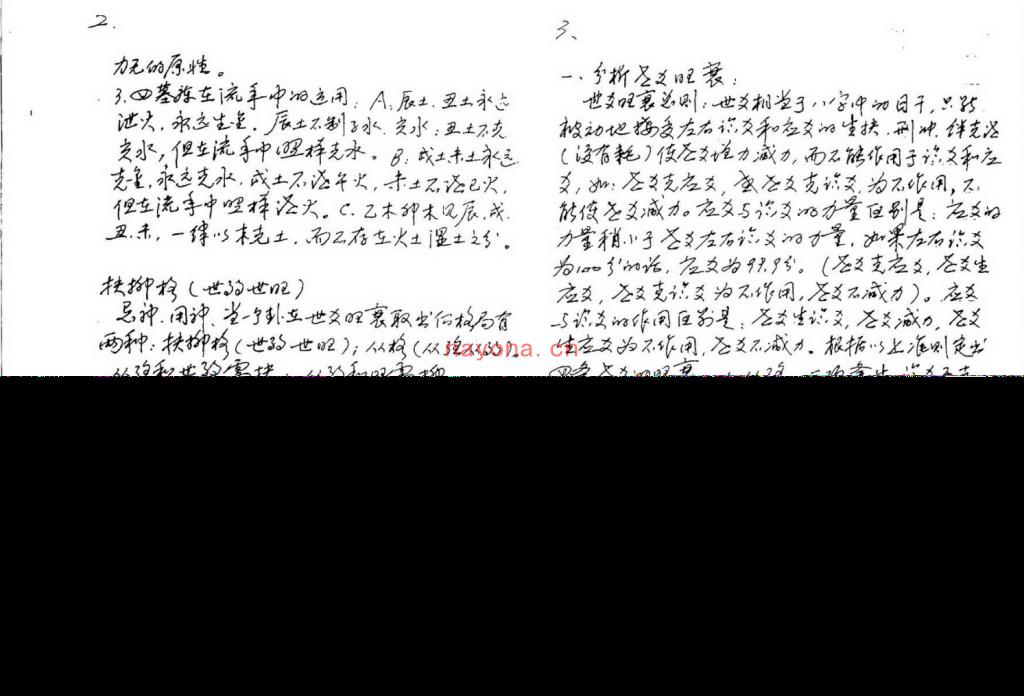 2.
力无的原性。
3.四墓库在流年中的运用：A:辰土.丑土永远
泄火,永远生金.辰土不制子水.亥水:丑土不克
亥水,但在流年中照样克水。B:戌土未土永远
克金,永远克水,戌土不泄午火,未土不泄巳火,
但在流年中照样泄火。C.乙木卯木见辰.戌.
丑.未,一律以木克土,而不存在火土湿土之分。
扶抑格(世弱世旺)
忌神.用神.当一个卦在世爻旺衰取出何格局有
两种:扶抑格(世弱世旺);从格(从强从弱)。
3、
一、分析世爻旺衰:
世爻旺衰总则:世爻相当于八字中的日干,只能
被动地接受左右爻和应爻的生扶.刑冲.克泄
(没有耗)使世爻增力减力,而不能作用于爻和应
爻,如:世爻克应爻,世爻克爻,为不作用,不
能使世爻减力。应爻与爻的力量区别是:应爻的
力量稍小于世爻左右爻的力量,如果左右爻
为100分的话,应爻为99.9分。(世爻克应爻,世爻生
应爻,世爻克爻为不作用,世爻不减力)。应爻
与爻的作用区别是:世爻生爻,世爻减力,世爻
生应爻为不作用,世爻不减力。根据以上准则定出
nayona.cn